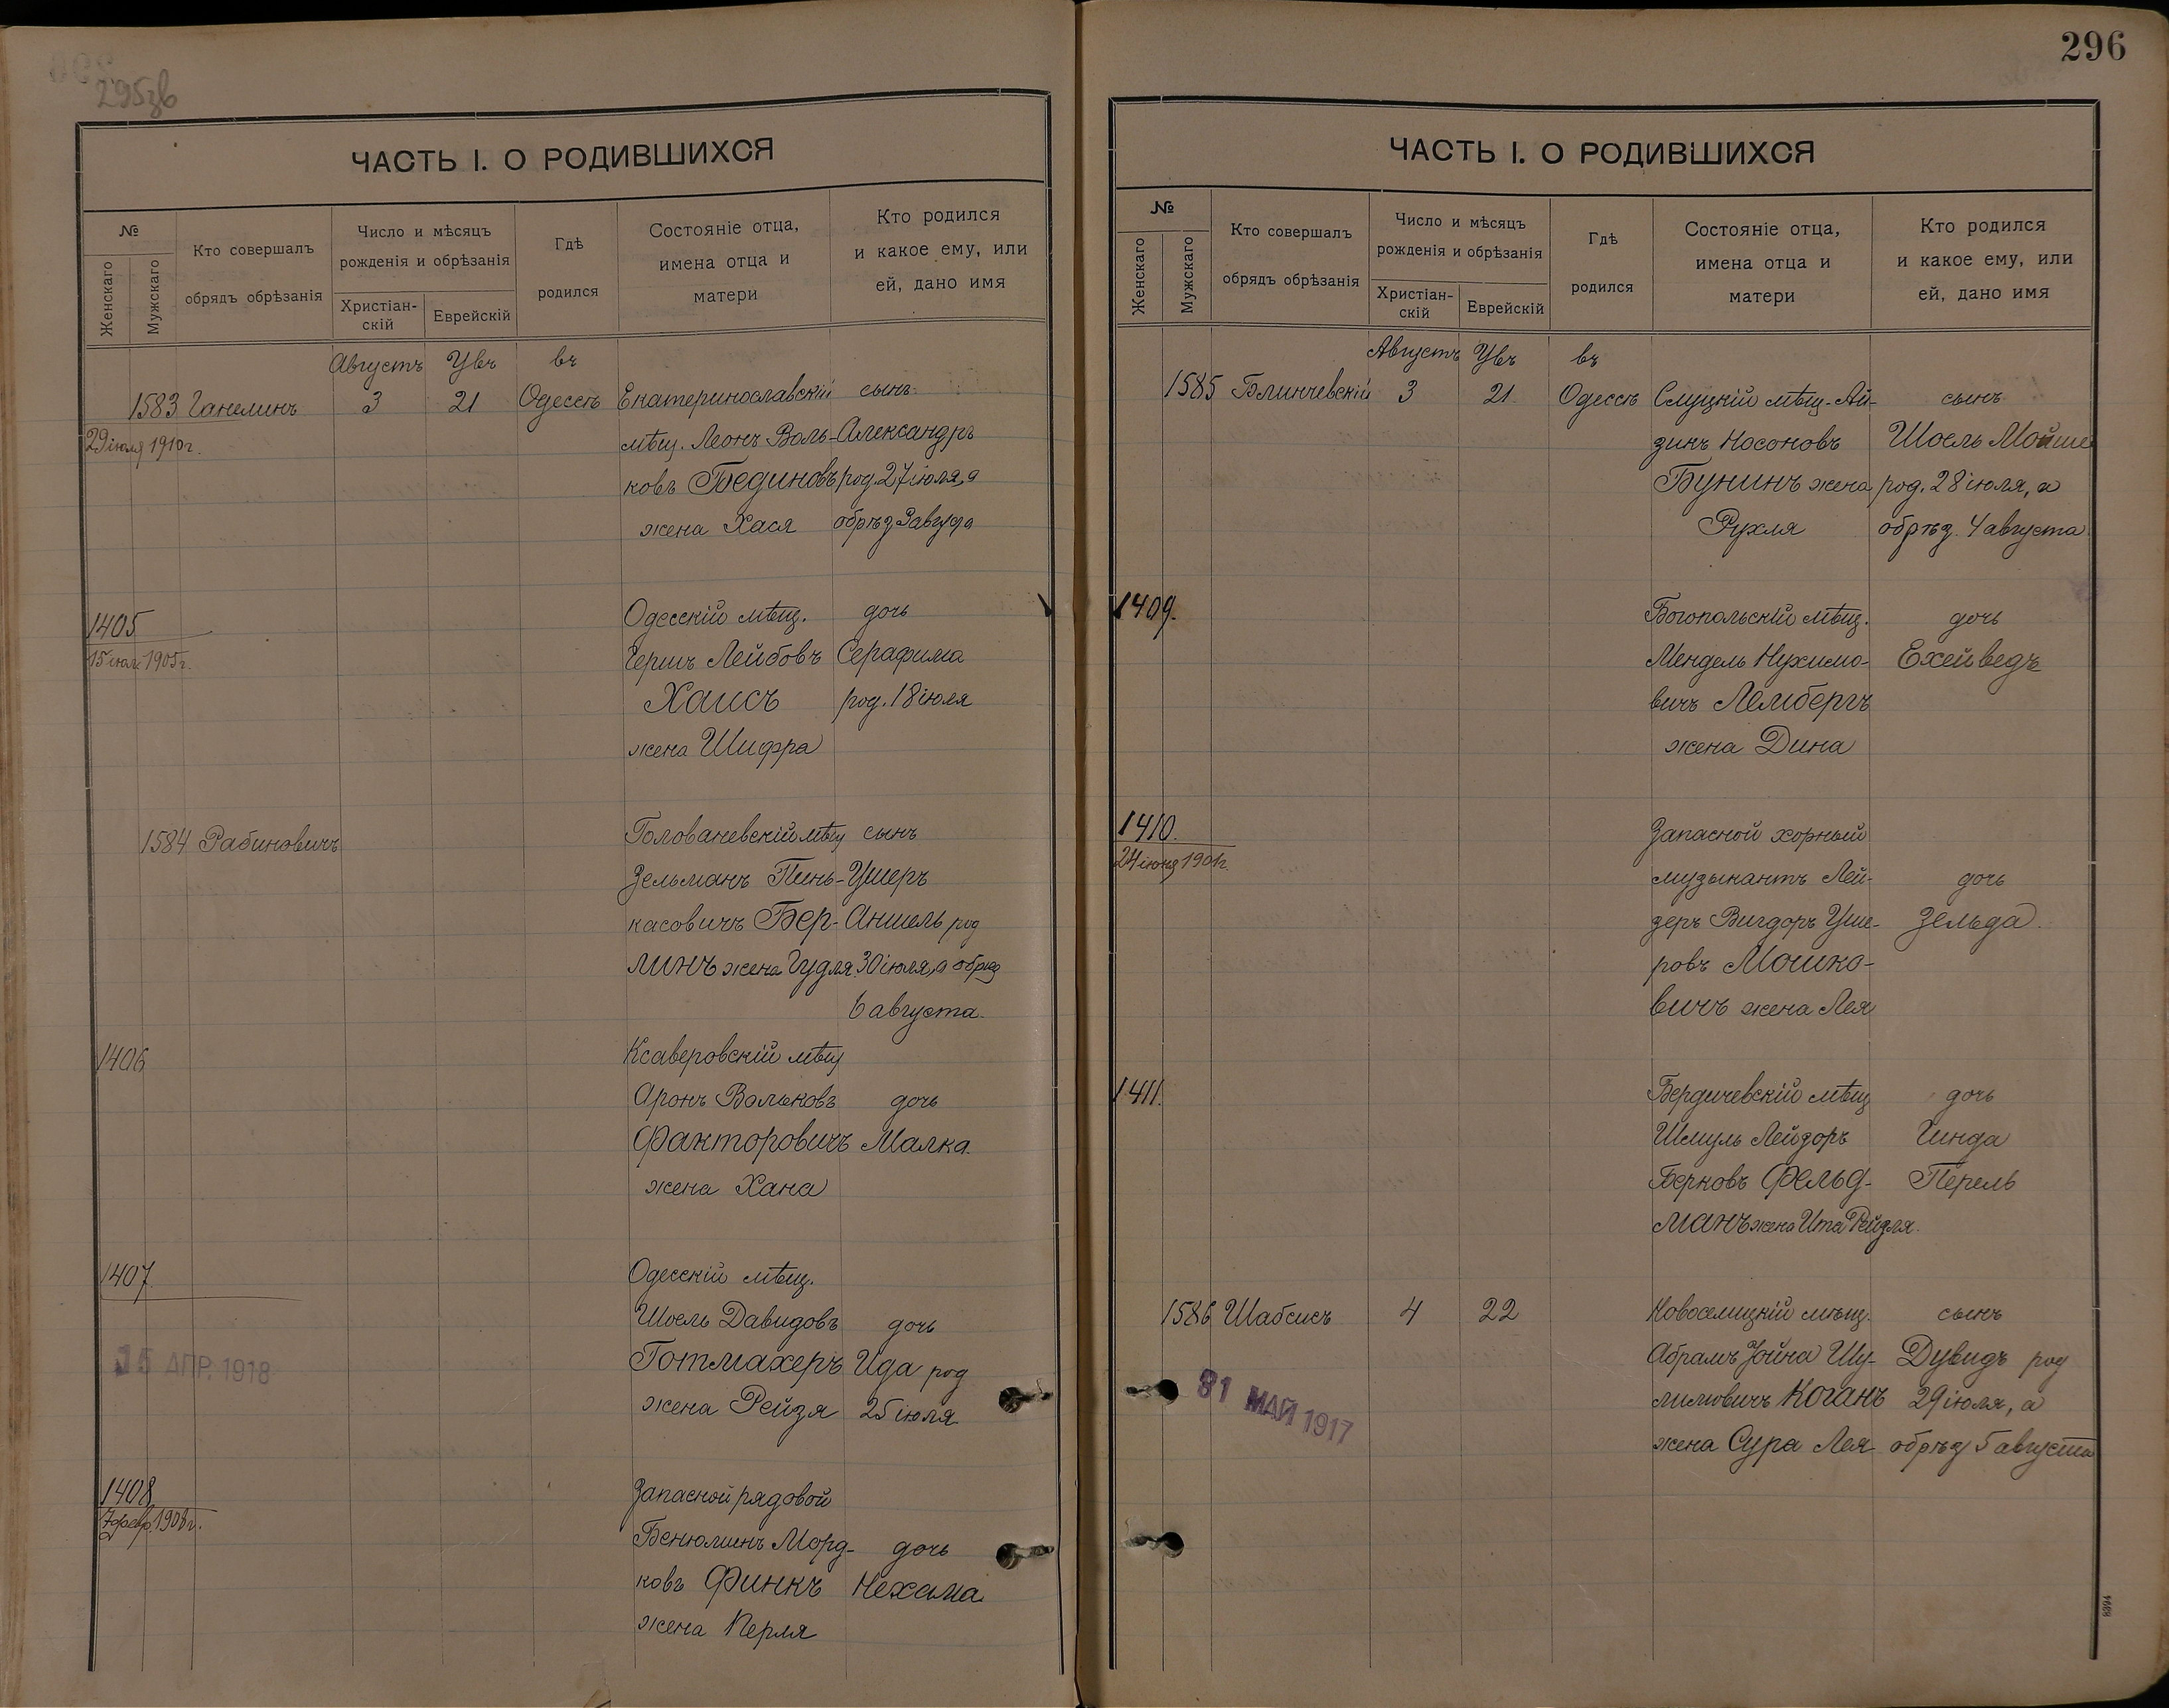 295 зв
ЧАСТЬ I. О РОДИВШИХСЯ
№
Женскаго
Мужскаго
Кто совершалъ
обрядъ обрѣзанія
Число и мѣсяцъ
рожденія и обрѣзанія
Христіан-
скій
Еврейскій
Гдѣ
родился
Состояніе отца,
имена отца и
матери
Кто родился
и какое ему, или
ей, дано имя
Августъ Увъ въ
1583 Ганелинъ 3 21 Одессѣ Екатеринославскій сынъ
29 іюля 1910 г.
мѣщ. Леонъ Воль- Александръ
ковъ Бединовъ род. 27 іюля, а
жена Хася обрѣз. 3 августа
1405 Одесскій мѣщ. дочь
15 1905 г.
Гершъ Лейбовъ Серафима
Хаисъ род. 18 іюля
жена Шифра
1584 Рабиновичъ Голованевскій мѣщ сынъ
Зельманъ Пинь- Ушеръ
касовичъ Бер- Аншель род
линъ жена Гудля 30 іюля, а обрѣз
6 августа.
1406 Ксаверовскій мѣщ
Аронъ Вольковъ дочь
Факторовичъ Малка.
жена Хана
1407 Одесскій мѣщ.
Шоель Давидовъ дочь
Готмахеръ Ида род
жена Рейзя 25 іюля.
15 АПР. 1918
1408 Запасной рядовой
7 февр. 1908 г.
Бенюминъ Морд- дочь
ковъ Финкъ Нехама.
жена Перля
296
ЧАСТЬ I. О РОДИВШИХСЯ
№
Женскаго
Мужскаго
Кто совершалъ
обрядъ обрѣзанія
Число и мѣсяцъ
рожденія и обрѣзанія
Христіан-
скій
Еврейскій
Гдѣ
родился
Состояніе отца,
имена отца и
матери
Кто родился
и какое ему, или
ей, дано имя
Августъ Увъ въ
1585 Блинчевскій 3 21 Одессѣ Слуцкій мѣщ. Ай- сынъ
зинъ Носоновъ Шоель Мойше
Бунинъ жена род. 28 іюля, а
Рухля обрѣз. 4 августа
1409. Богопольскій мѣщ. дочь
Мендель Нухимо- Ехейведъ
вичъ Лембергъ
жена Дина
1410. Запасной хорный
24 1901 г.
музыкантъ Лей- дочь
зеръ Вигдоръ Уше- Зельда.
ровъ Мошко-
вичъ жена Лея
1411. Бердичевскій мѣщ дочь
Шмуль Лейзоръ Гинда
Берковъ Фельд- Перель
манъ жена Ита Рейзля.
1586 Шабсисъ 4 22 Новоселицкій мѣщ. сынъ
Абрамъ Іойна Шу- Дувидъ род
лимовичъ Коганъ 29 іюля, а
жена Сура Лея обрѣз 5 августа
31 МАЙ 1917
8394